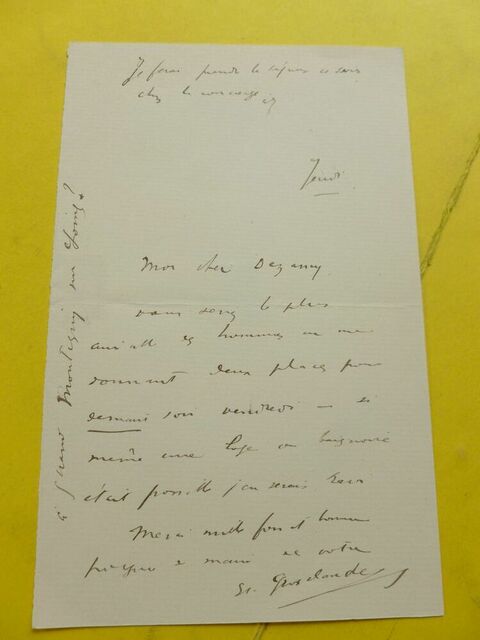 Je ferai prendre la réponse ce soir
chez le concierge
Jeudi
Mon cher Dezamy
vous serez le plus
des hommes en me
donnant deux places pour
demain soir vendredi — si
même une loge ou baignoire
était possible j'en serais ravi
Merci mille fois et bonne
poignée de main de votre
G. Grosclaude
à quand Montigny sur Loing ?